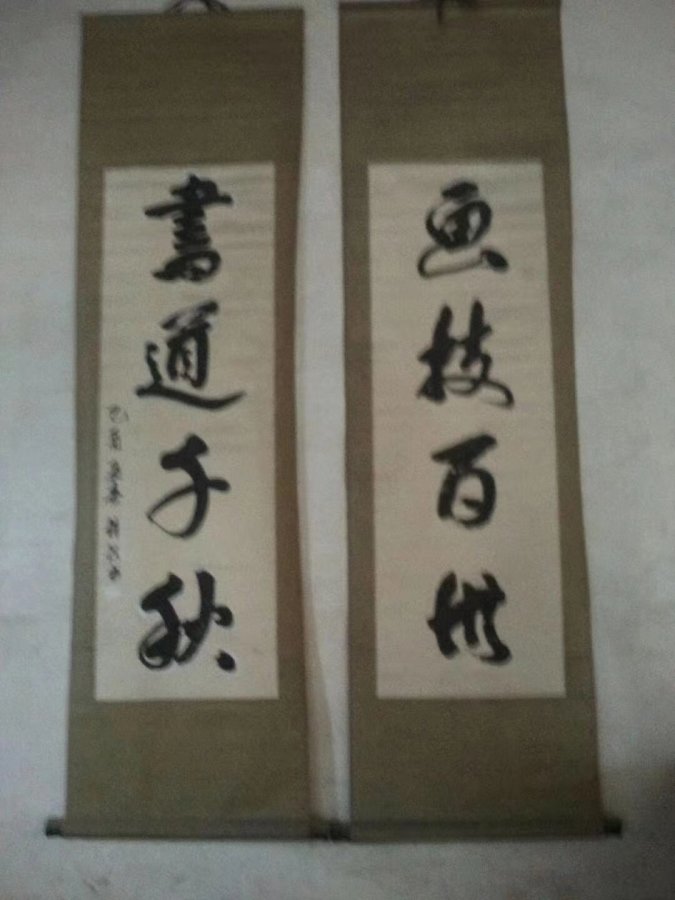 画技百世
書道千秋